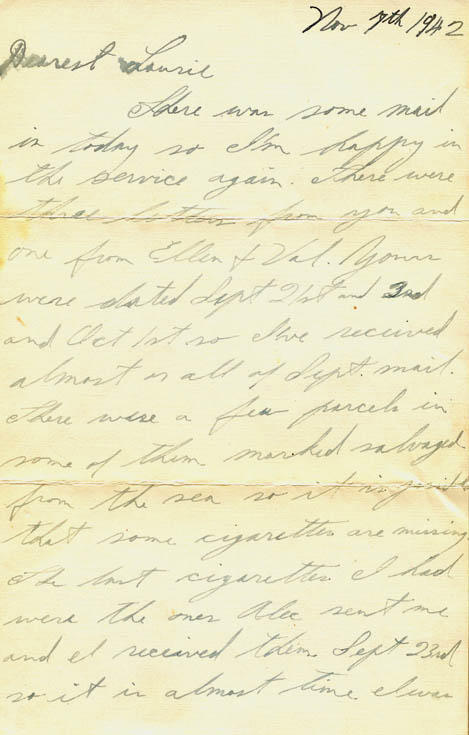 Nov 7th 1942
Dearest Laurie
There was some mail
in today so I'm happy in
the service again. There were
three letters from you and
one from Ellen & Val. Yours
were dated Sept 21st and 3rd
and Oct 1st so I've received
almost all of Sept. mail.
There were a few parcels in
some of them marked salvaged
from the sea so it is
that some cigarettes are missing
The last cigarettes I had
were the ones Alec sent me
and I received them Sept 23rd
so it is almost time I was